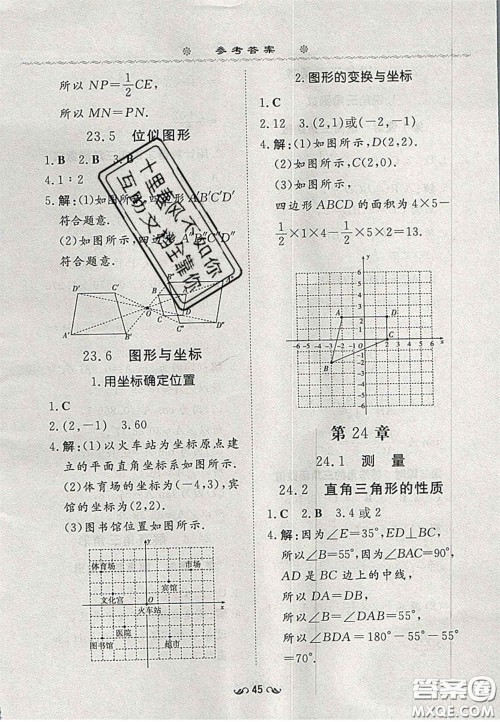 参考答案
所以 NP=1/2CE,
所以 MN=PN.
23.5 位似图形
1.B 2.B 3.B
4.1∶2
5.解:(1)如图所示,四边形 A′B′C′D′
符合题意.
(2)如图所示,四边形 A″B″C″D″
符合题意.
十里春风不如你
互助文档全靠你
23.6 图形与坐标
1.用坐标确定位置
1.C
2.(2,-1) 3.60
4.解:(1)以火车站为坐标原点建
立的平面直角坐标系如图所示.
(2)体育场的坐标为(-4,3),宾
馆的坐标为(2,2).
(3)图书馆位置如图所示.
体育场
市场
宾馆
文化宫
O
x
火车站
医院
图书馆
2.图形的变换与坐标
1.C
2.12 3.(2,1)或(-2,-1)
4.解:(1)如图所示,D(2,2).
(2)如图所示,C(2,0).
(3)如图所示.
四边形 ABCD 的面积为 4×5-
1/2×1×5-1/2×2×4=
第 24 章
24.1 测 量
24.2 直角三角形的性质
1.D 2.B 3.4或2
4.解:因为∠E=35°,ED⊥BC,
所以∠B=55°,因为∠BAC=90°,
AD 是 BC 边上的中线,
所以 DA=DB,
所以∠B=∠DAB=55°,
所以∠BDA=180°-55°-55°
=70°.
45
答案圈
MXQE.COM